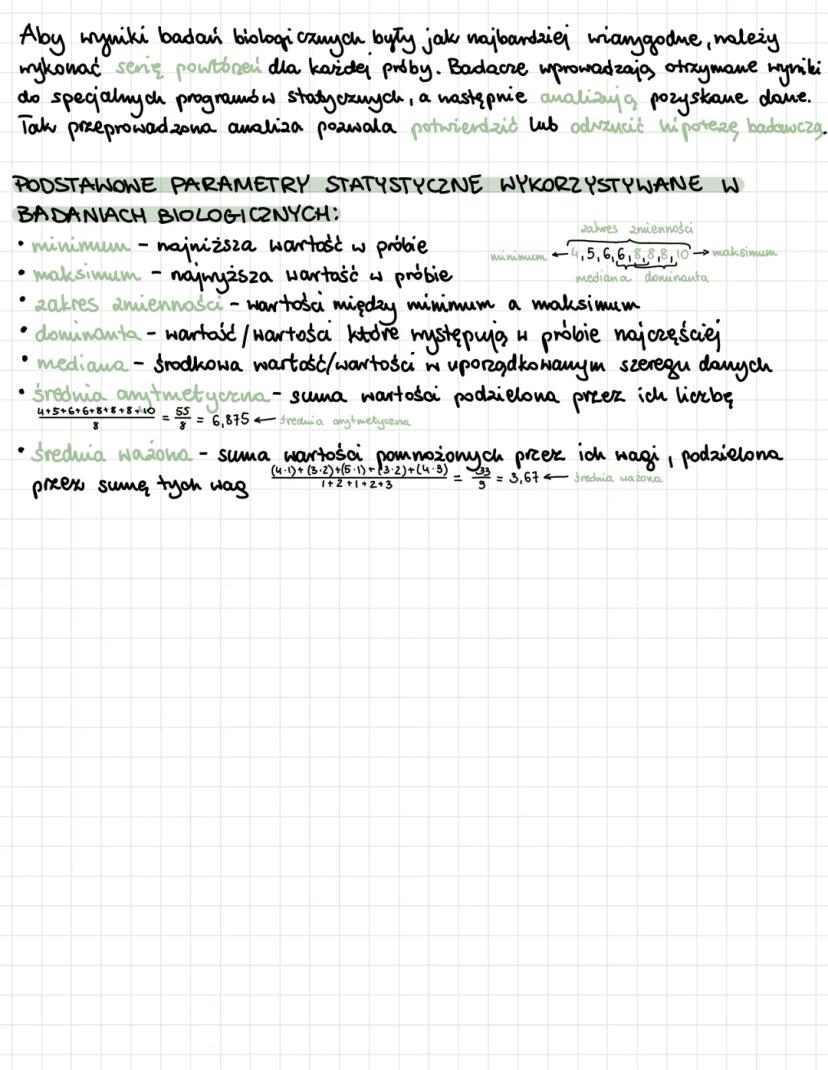 Aby wyniki badań biologicznych były jak najbardziej wiarygodne, należy
wykonać serię powtórzeń dla każdej próby. Badacze wprowadzają otrzymane wyniki
do specjalnych programów statycznych, a następnie analizują pozyskane dane.
Tak przeprowadzona analiza pozwala potwierdzić lub odrzucić hipotezę badawczą.
PODSTAWOWE PARAMETRY STATYSTYCZNE WYKORZYSTYWANE W
BADANIACH BIOLOGICZNYCH:
• minimum - najniższa wartość w próbie
• maksimum - najwyższa wartość w próbie
zakres zmienności
minimum ← 4,5,6,6,8,8,8,10 → maksimum
mediana dominanta
• zakres zmienności - wartości między minimum a maksimum
• dominanta - wartość/wartości które występują w próbie najczęściej
• mediana - środkowa wartość/wartości w uporządkowanym szeregu danych
• średnia arytmetyczna - suma wartości podzielona przez ich liczbę
4+5+6+6+8+8+8+10/8 = 55/8 = 6,875 ← średnia arytmetyczna
• średnia ważona - suma wartości pomnożonych przez ich wagi, podzielona
przez sumę tych wag (4·1)+(3·2)+(5·1)+(3·2)+(4·3)/1+2+1+2+3 = 33/9 = 3,67 ← średnia ważona